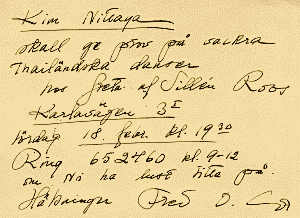 Kim Nitaya
skall ge prov på vackra
Thailändska danser
hos Greta af Sillén Roos
Karlavägen 3 I
lördag 18. febr. kl. 19 30
Ring 652760 kl. 9-12
om Ni ha lust titta på.
Hälsningar Fred O.